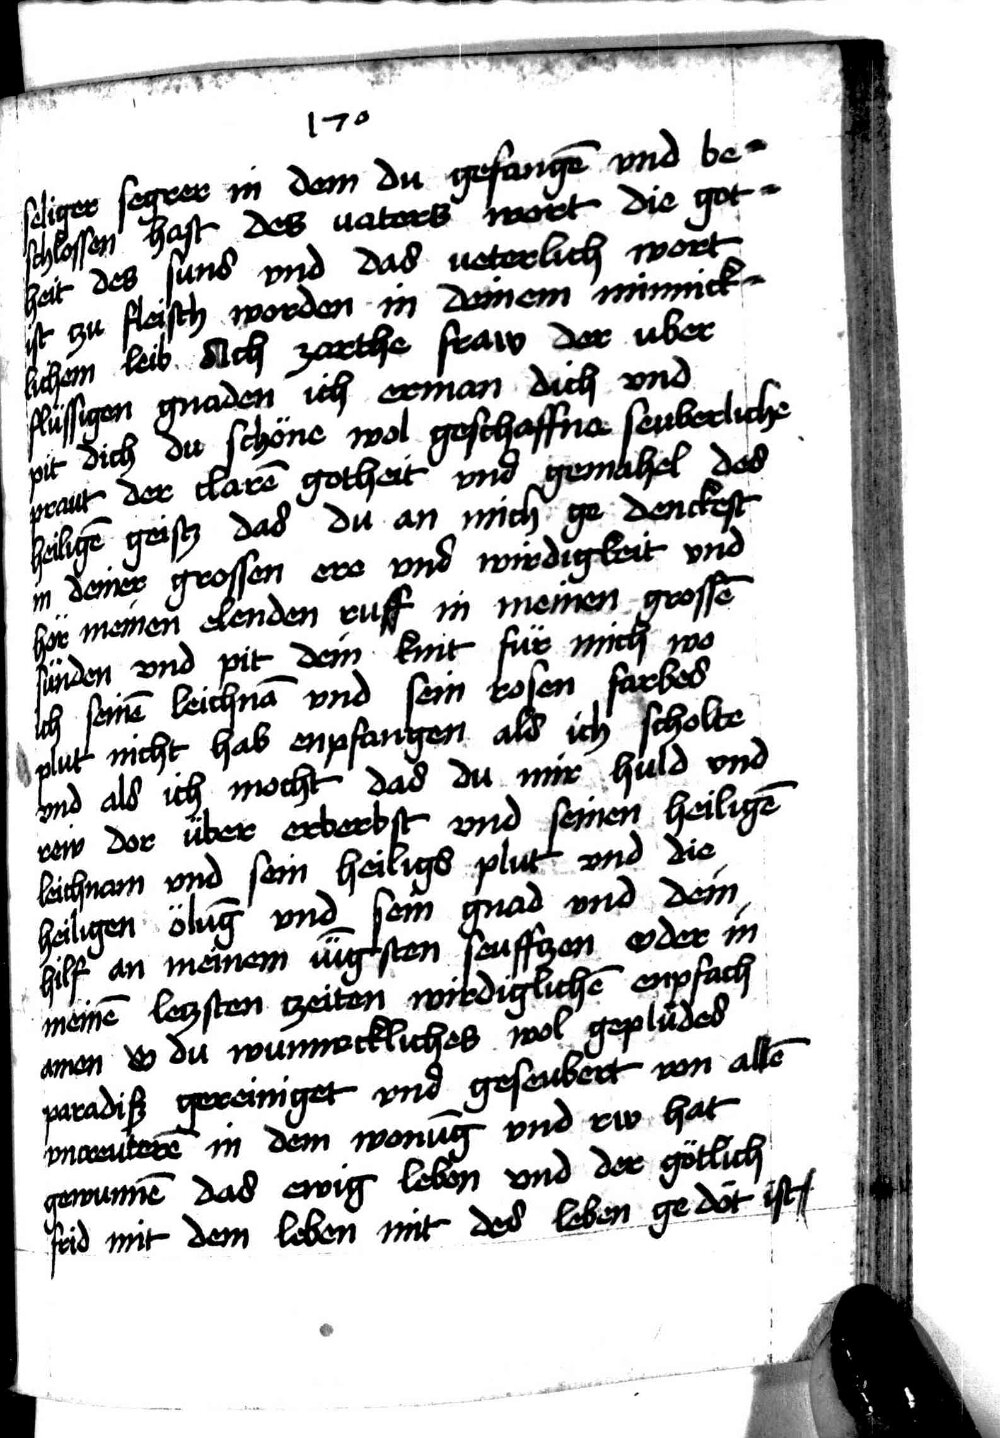 170
seliger segrer in dem du gefangē vnd be-
schlossen hast des uaters wort die got-
heit des suns vnd das ueterlich wort
ist zu fleisch worden in deinem minnick-
lichem leib Ach zarthe fraw der uber
flüssigen gnaden ich erman dich vnd
pit dich du schöne wol geschaffne seuberliche
praut der clarē gotheit vnd gemahel des
heiligē geistz das du an mich ge denckest
in deiner grossen ere vnd wirdigkeit vnd
hör meinen elenden ruff in meinen grossē
sünden vnd pit dein kint für mich wo
ich seinē leichnā vnd sein rosen farbes
plut nicht hab enpfangen als ich scholte
vnd als ich mocht das du mir huld vnd
rew dor über erberbst vnd seinen heiligē
leichnam vnd sein heiligs plut vnd die
heiligen ölūg vnd sein gnad vnd dein
hilf an meinem iūgsten seufftzen oder in
meinē letzsten tzeiten wirdiglichē enpfach
amen O du wunnickliches wol geplüdes
paradiß gereiniget vnd geseubert von allē
in dem wonūg vnd rw hat
gewunnē das ewig leben vnd der götlich
frid mit dem leben mit des leben ge döt ist